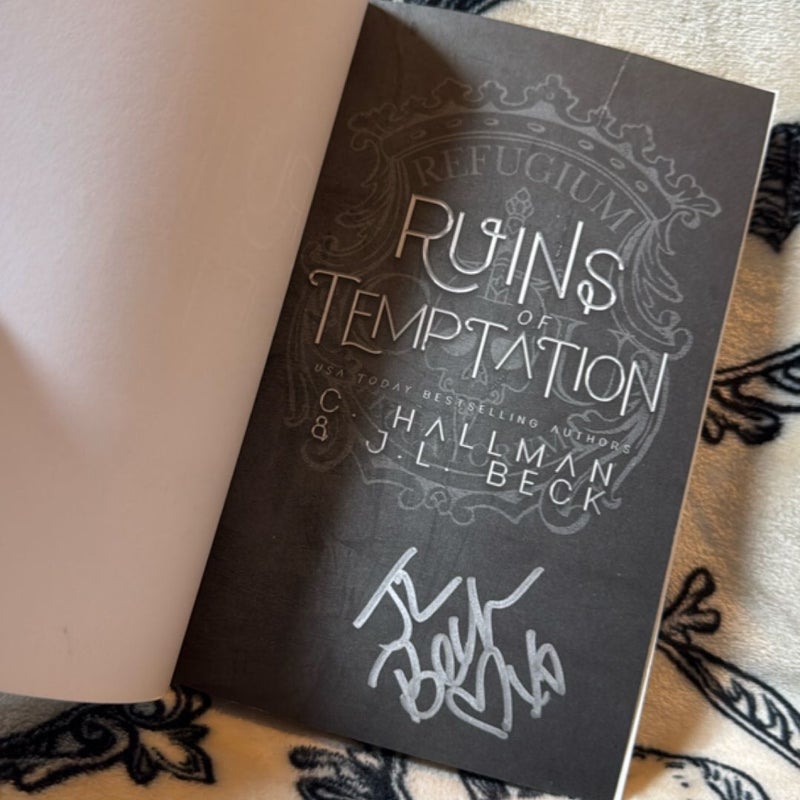 REFUGIUM
RUINS
OF
TEMPTATION
USA TODAY BESTSELLING AUTHORS
C. HALLMAN
& J.L. BECK
JL
Beck